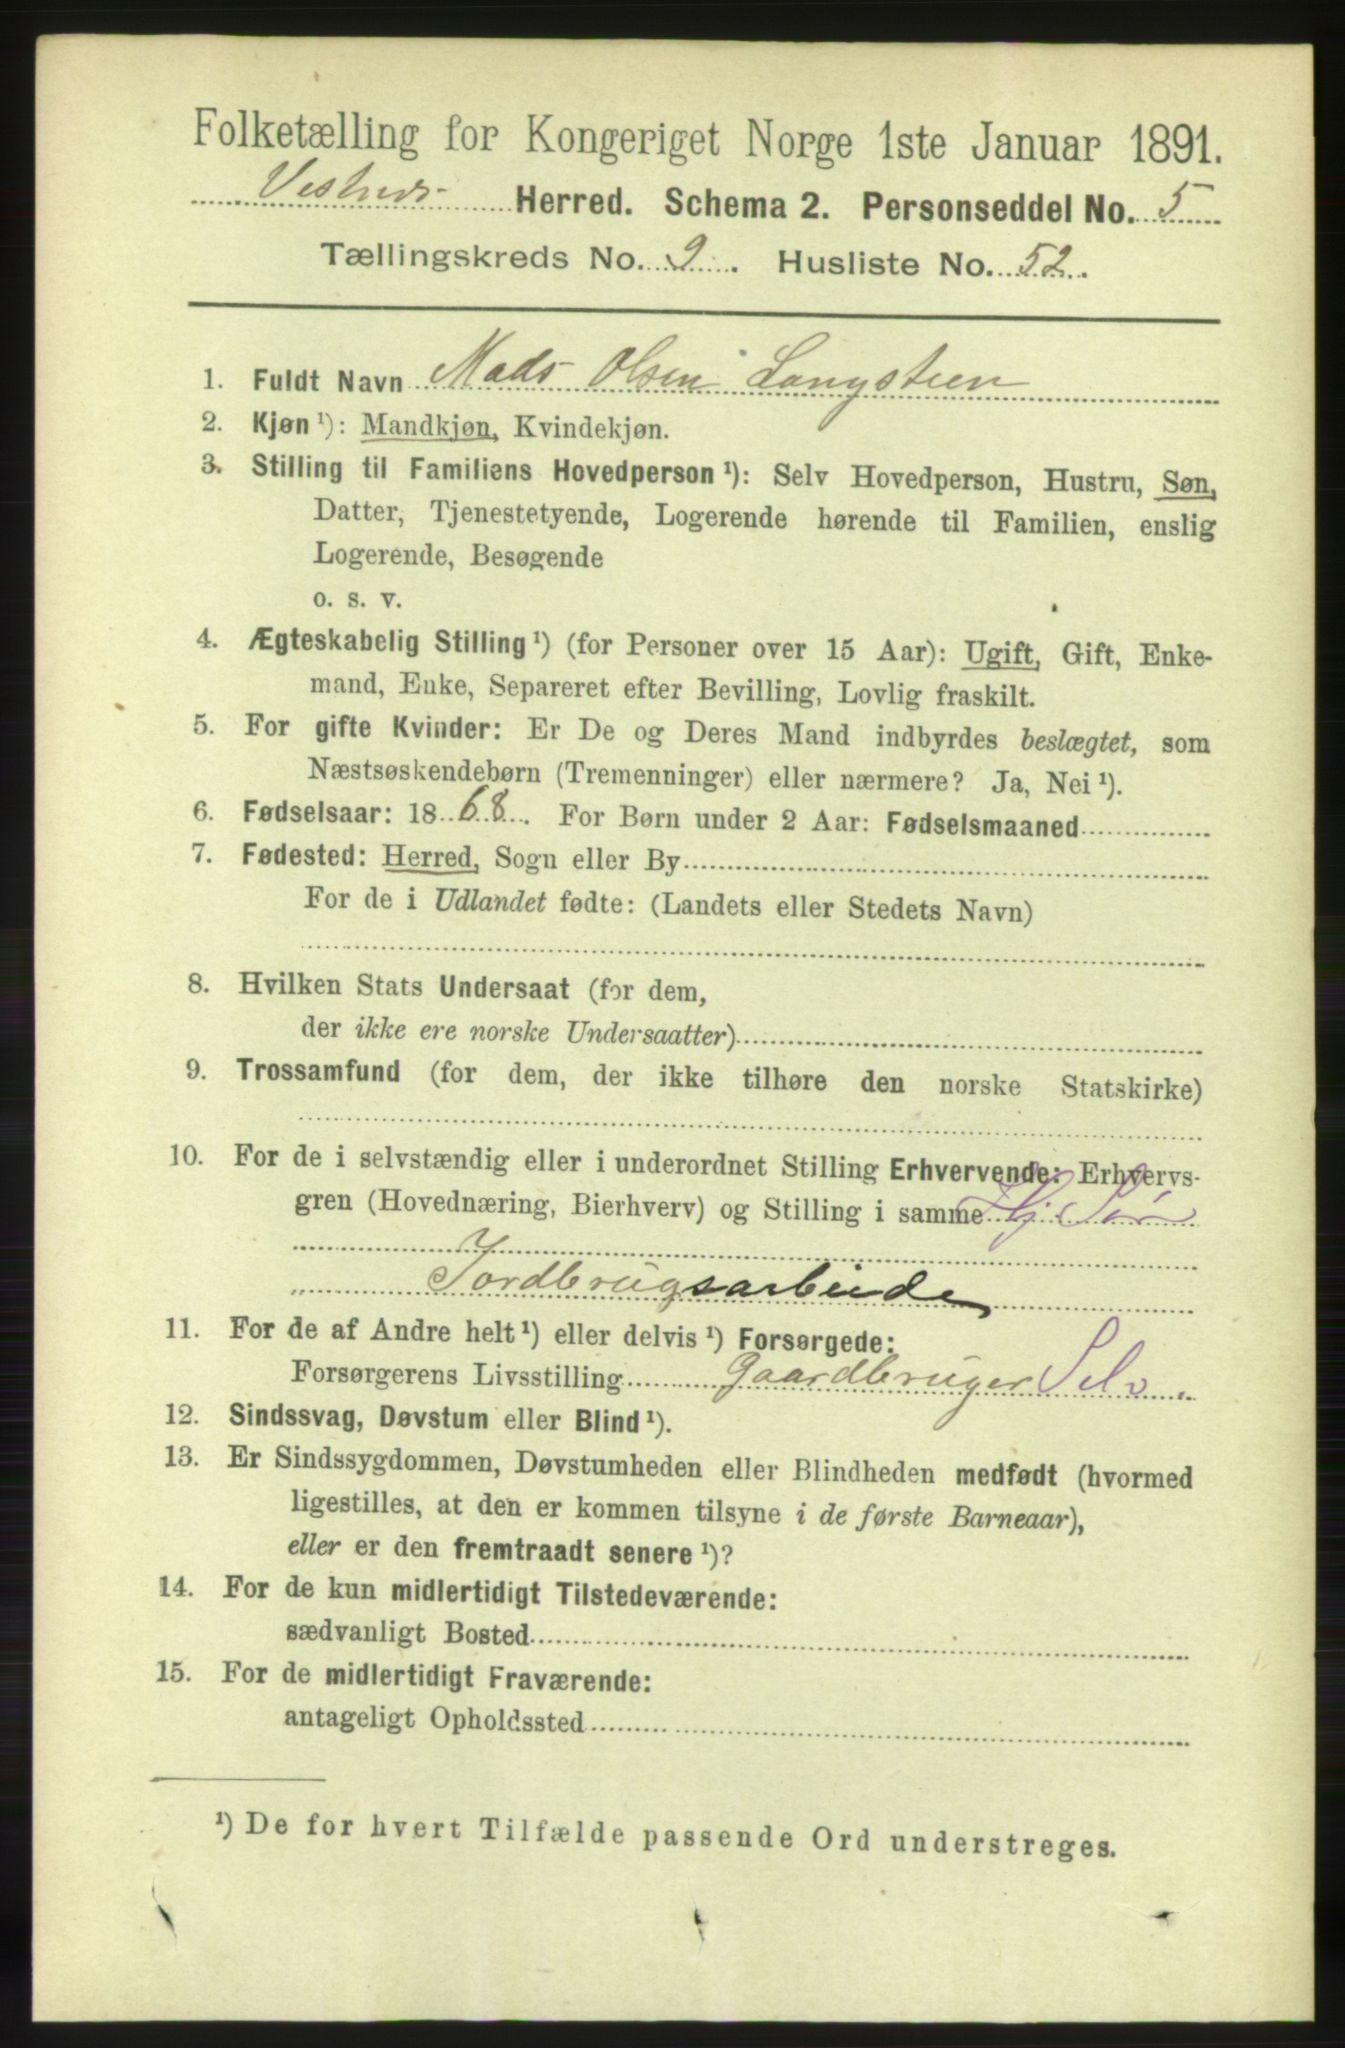 Folketælling for Kongeriget Norge 1ste Januar 1891.
Vestnes Herred. Schema 2. Personseddel No. 5
Tællingskreds No. 9. Husliste No. 52.
1. Fuldt Navn Mads Olsen Langsteen
2. Kjøn ¹): Mandkjøn, Kvindekjøn.
3. Stilling til Familiens Hovedperson ¹): Selv Hovedperson, Hustru, Søn,
Datter, Tjenestetyende, Logerende hørende til Familien, enslig
Logerende, Besøgende
o. s. v.
4. Ægteskabelig Stilling ¹) (for Personer over 15 Aar): Ugift, Gift, Enke-
mand, Enke, Separeret efter Bevilling, Lovlig fraskilt.
5. For gifte Kvinder: Er De og Deres Mand indbyrdes beslægtet, som
Næstsøskendebørn (Tremenninger) eller nærmere? Ja, Nei ¹).
6. Fødselsaar: 1868. For Børn under 2 Aar: Fødselsmaaned
7. Fødested: Herred, Sogn eller By
For de i Udlandet fødte: (Landets eller Stedets Navn)
8. Hvilken Stats Undersaat (for dem,
der ikke ere norske Undersaatter)
9. Trossamfund (for dem, der ikke tilhøre den norske Statskirke)
10. For de i selvstændig eller i underordnet Stilling Erhvervende: Erhvervs-
gren (Hovednæring, Bierhverv) og Stilling i samme Hj. Søn
Jordbrugsarbeide
11. For de af Andre helt ¹) eller delvis ¹) Forsørgede:
Forsørgerens Livsstilling Gaardbruger Selv.
12. Sindssvag, Døvstum eller Blind ¹).
13. Er Sindssygdommen, Døvstumheden eller Blindheden medfødt (hvormed
ligestilles, at den er kommen tilsyne i de første Barneaar),
eller er den fremtraadt senere ¹)?
14. For de kun midlertidigt Tilstedeværende:
sædvanligt Bosted
15. For de midlertidigt Fraværende:
antageligt Opholdssted
¹) De for hvert Tilfælde passende Ord understreges.